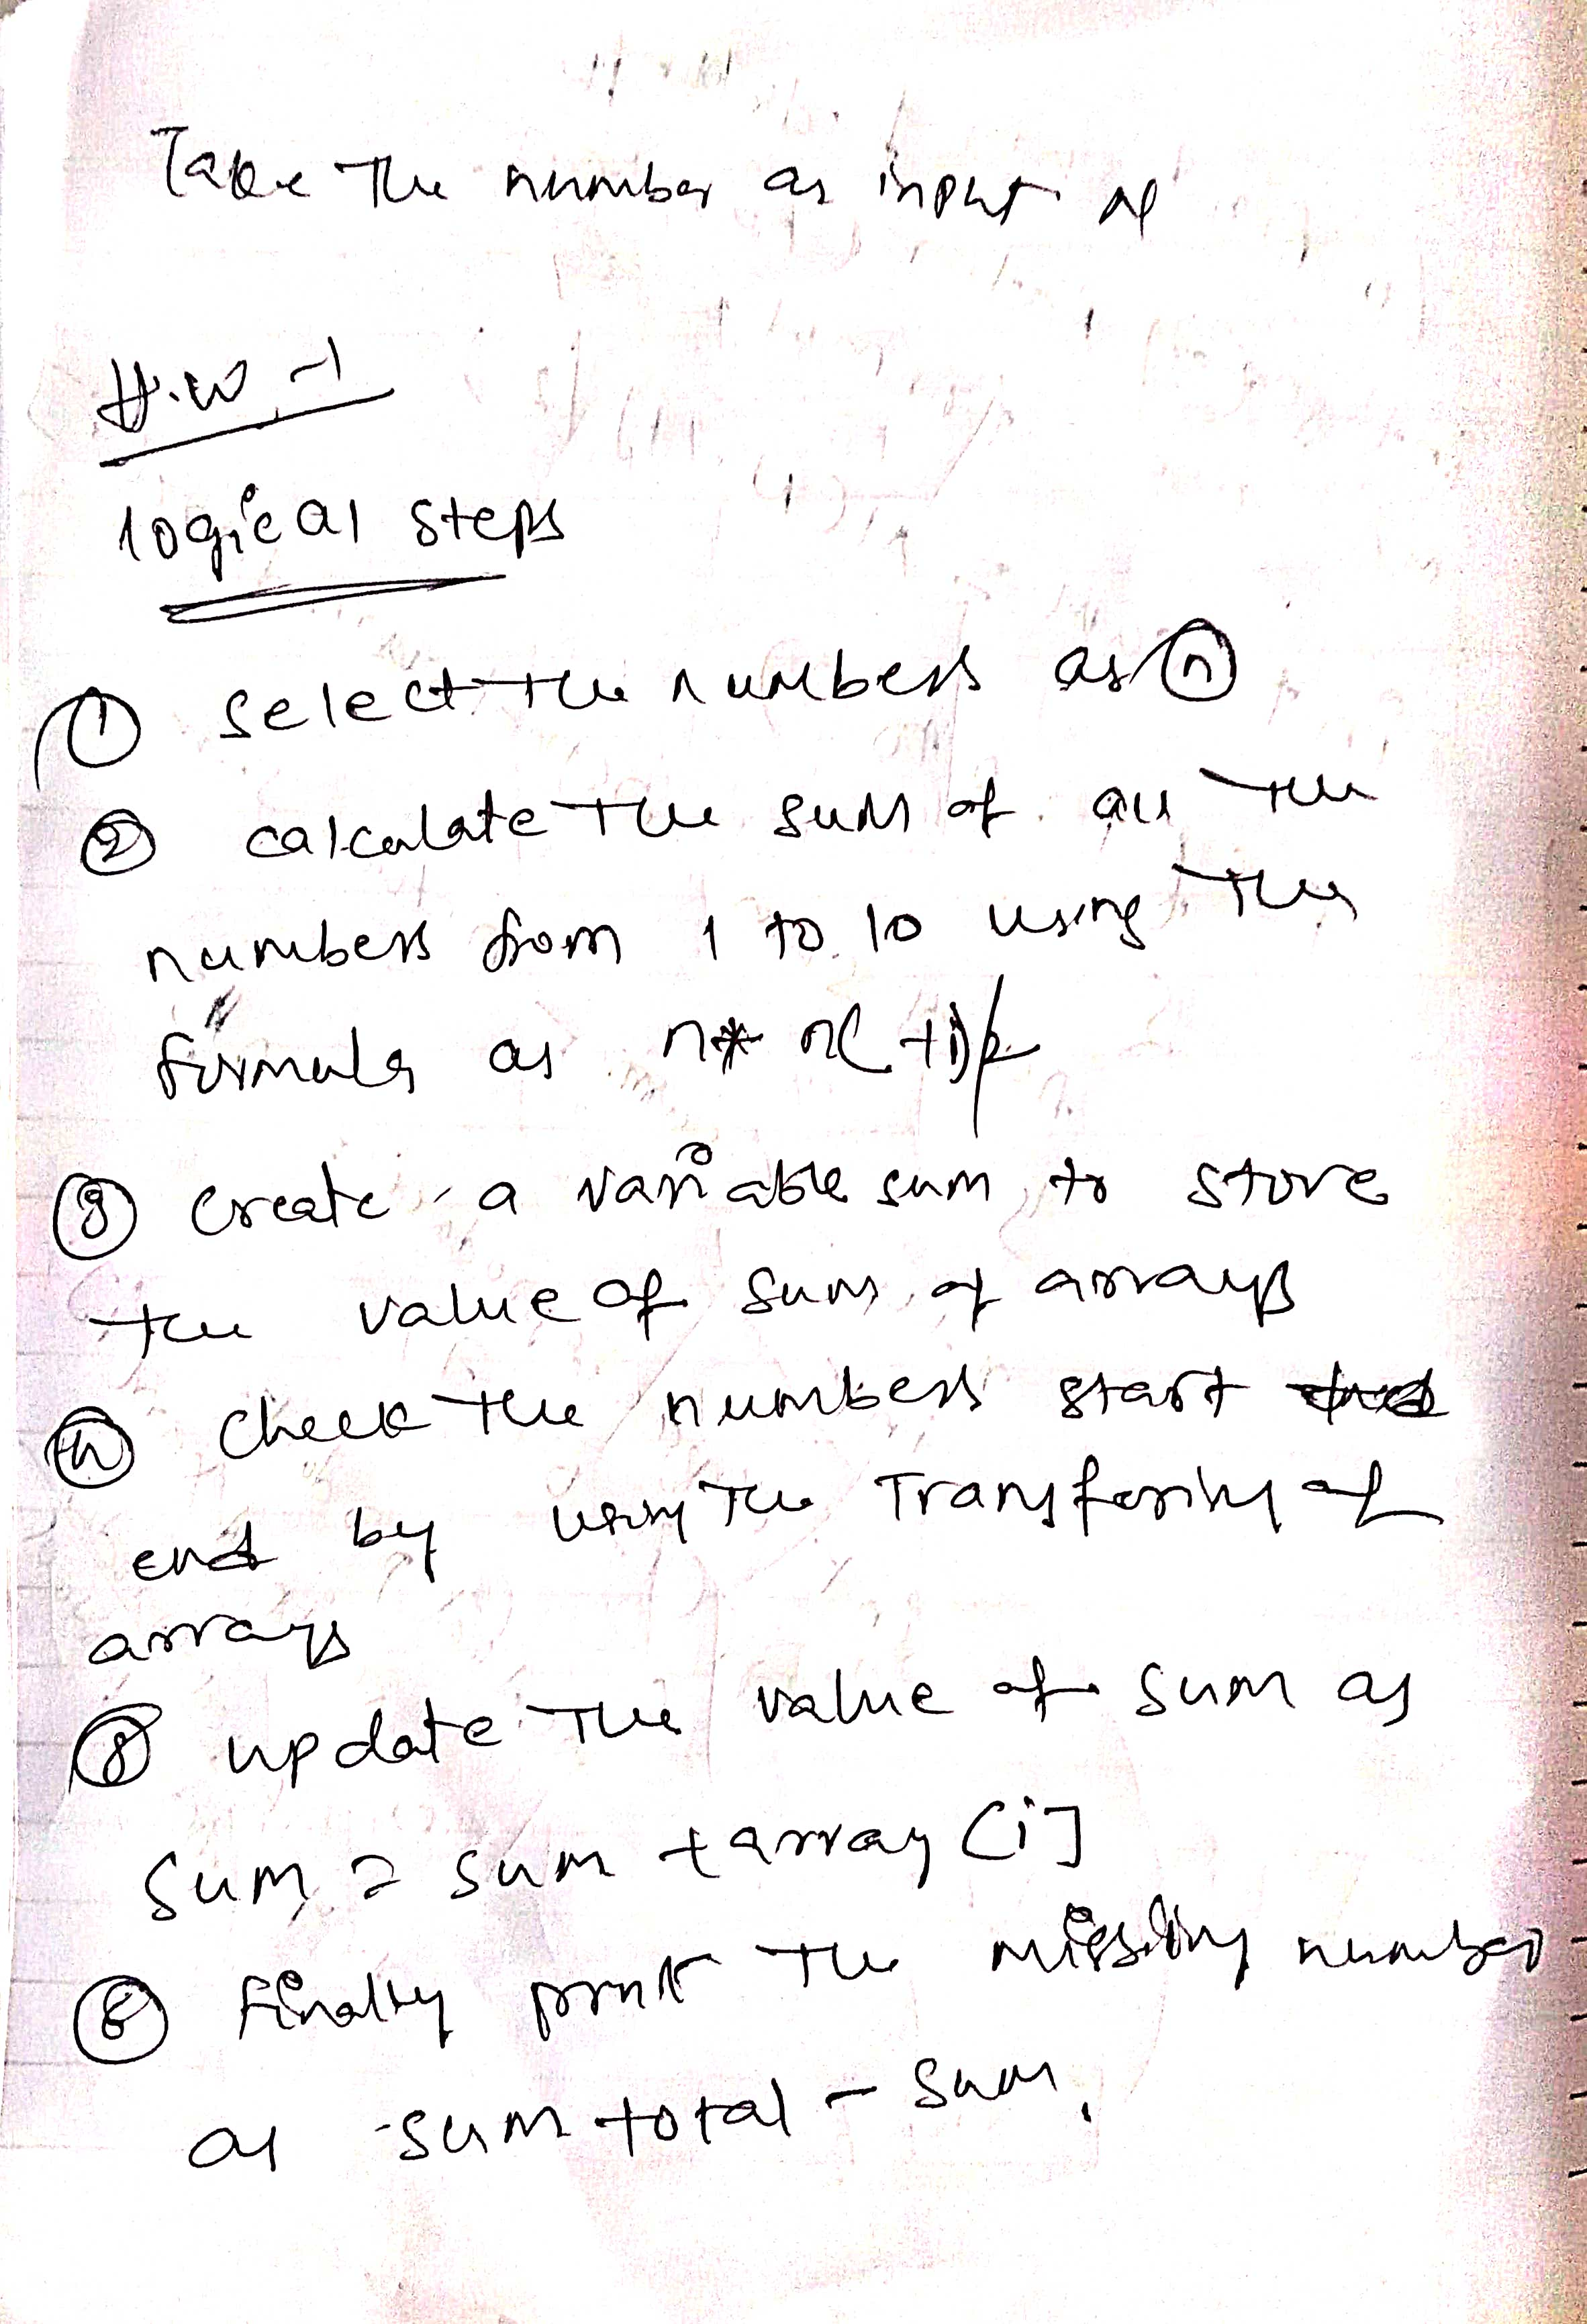 Take the number as input of
H.W-1
logical steps
① select the numbers as ⓝ
② calculate the sum of all the
numbers from 1 to 10 using the
formula as n* n( +1)/2
③ create a variable sum to store
the value of sum of arrays
④ check the numbers start
end by using the Transfering of
arrays
⑤ update the value of sum as
sum = sum + array [i]
⑥ finally print the missing number
as sum total - sum.